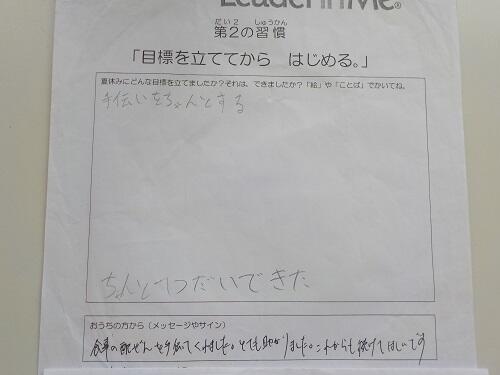 Leader in Me®
だい2 しゅうかん
第2の習慣
「目標を立ててから はじめる。」
夏休みにどんな目標を立てましたか？それは、できましたか？「絵」や「ことば」でかいてね。
手伝いをちゃんとする
ちゃんとてつだいできた
おうちの方から（メッセージやサイン）
食事の配ぜんを手伝ってくれました。とても助かりました。これからも続けてほしいです